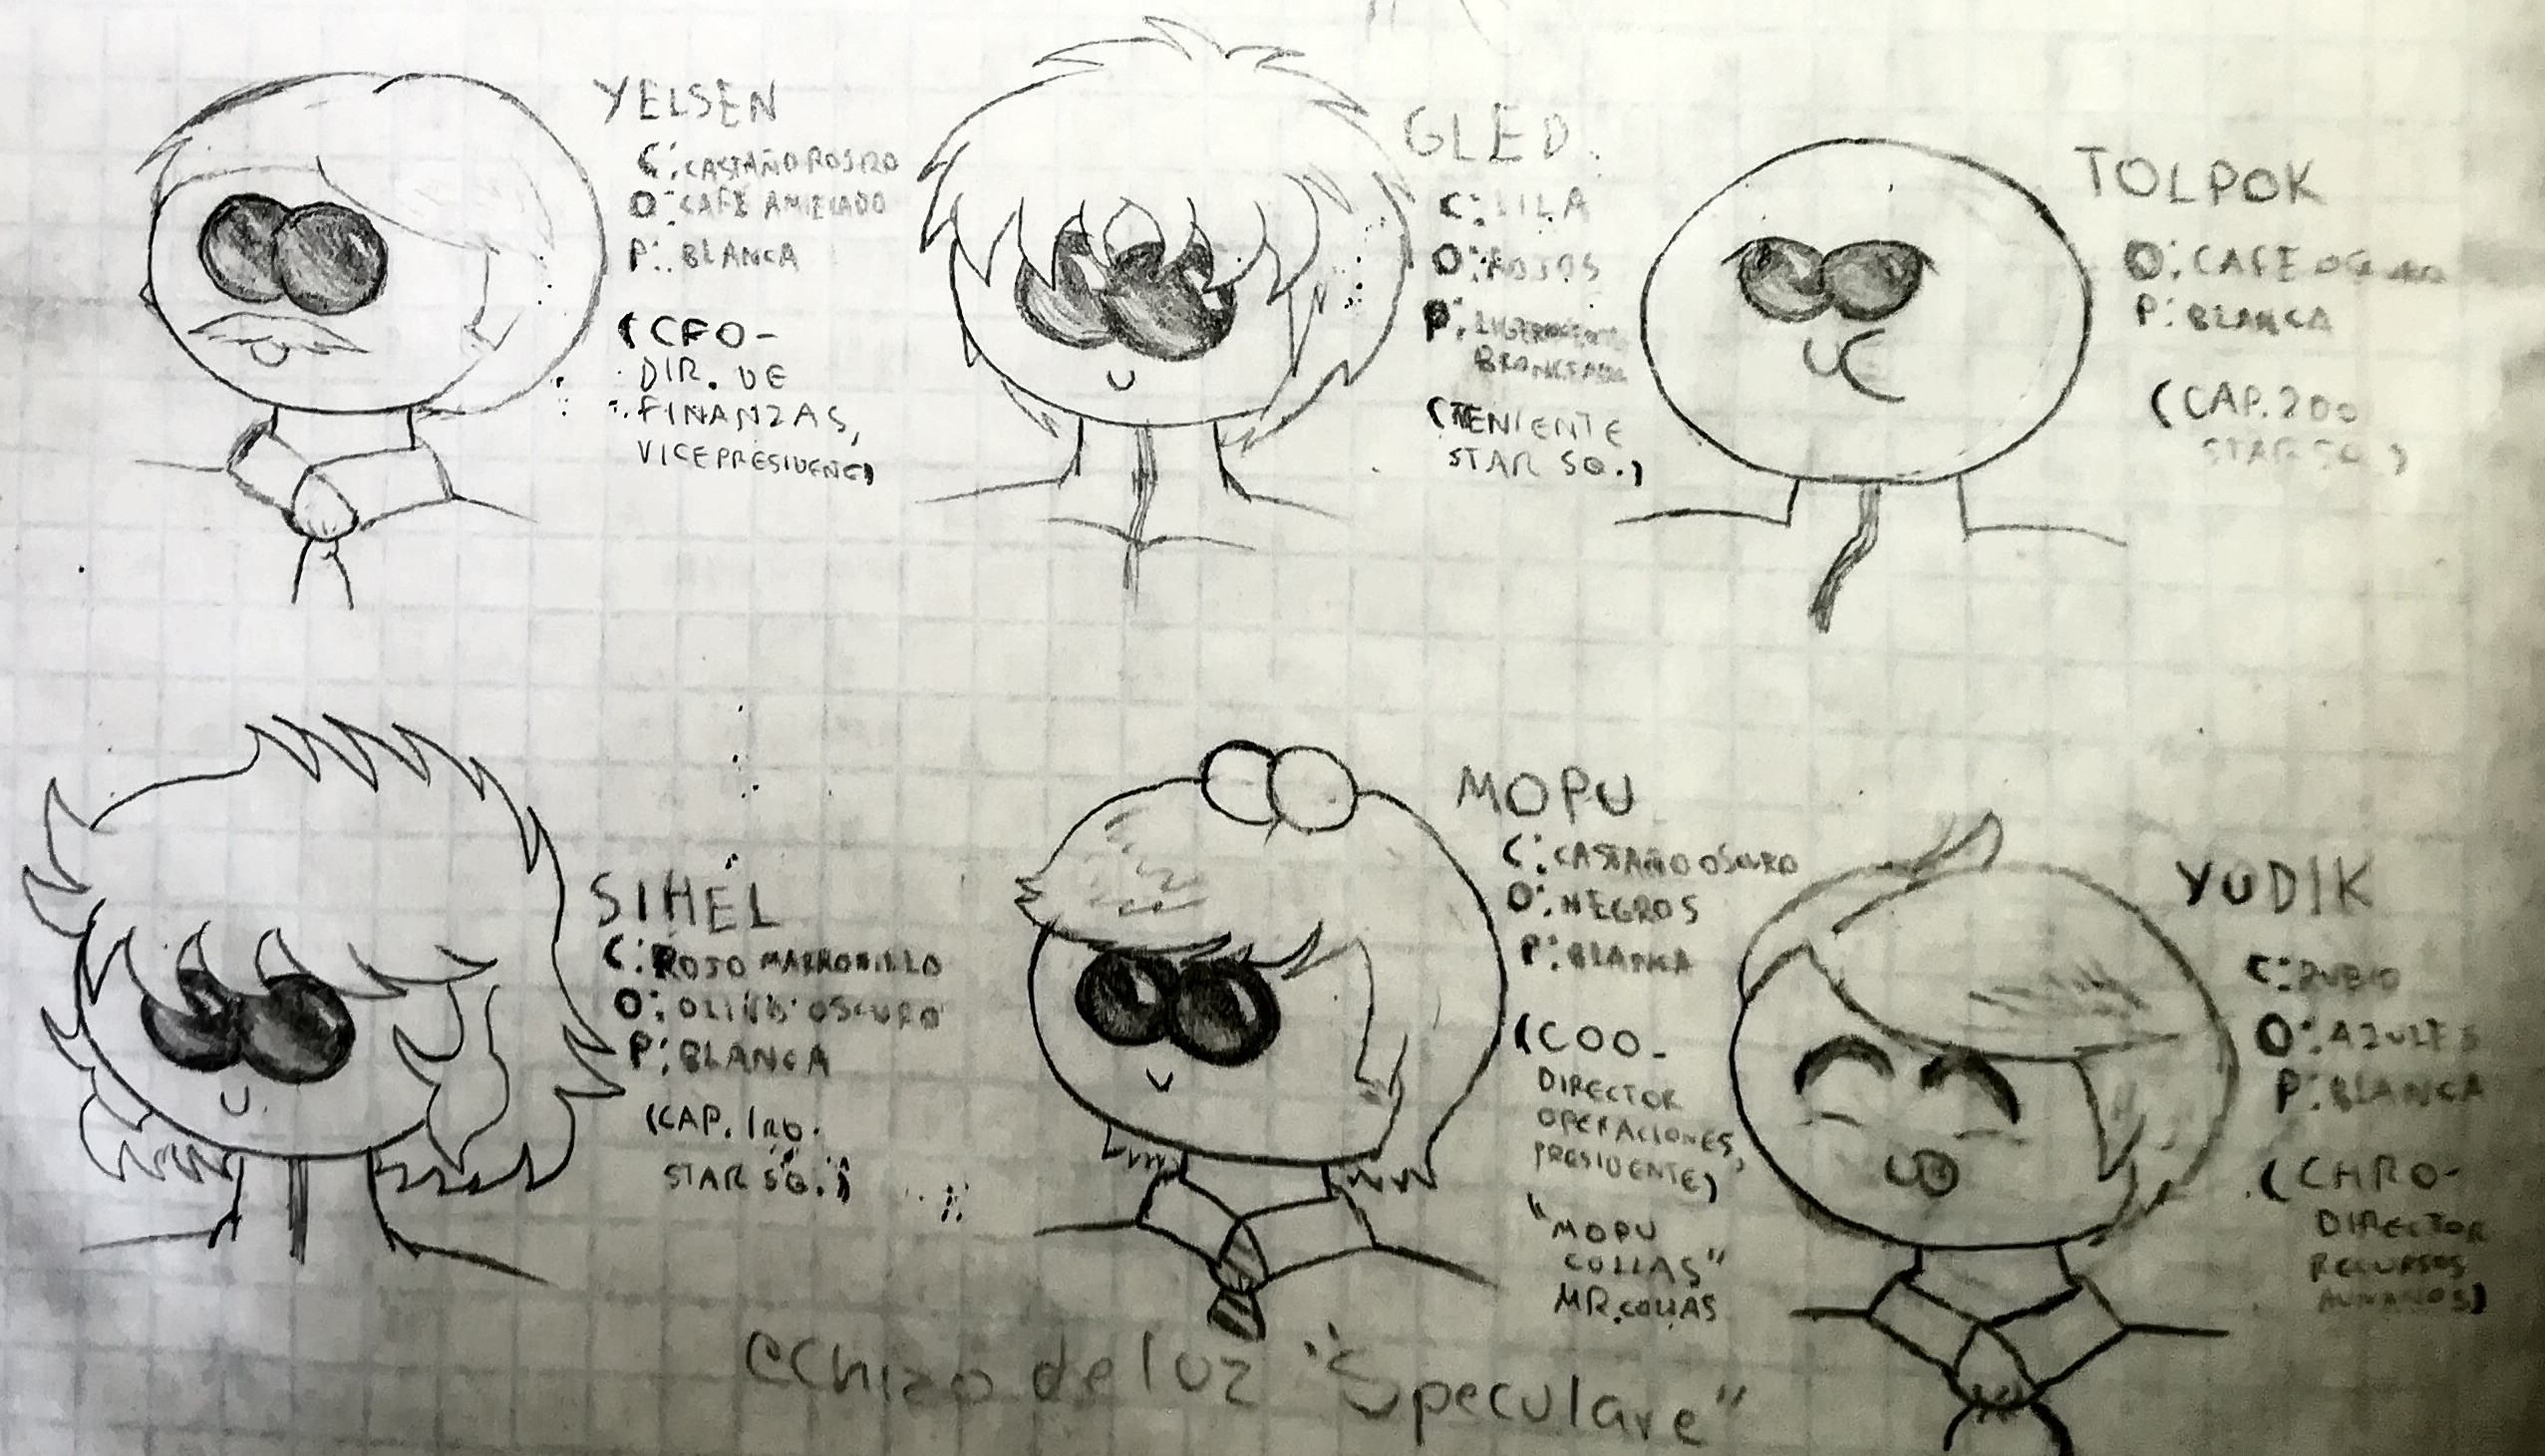 YELSEN
C: CASTAÑO ROJIZO
O: CAFE AMIELADO
P: BLANCA
(CFO-
DIR. DE
FINANZAS,
VICEPRESIDENC)
GLED
C: LILA
O: ROJOS
P:
BRONCEADA
(TENIENTE
STAR SQ.)
TOLPOK
O: CAFE OSCURO
P: BLANCA
(CAP. 2DO
STAR SQ.)
SIHEL
C: ROJO MARRONILLO
O: OSCURO
P: BLANCA
(CAP. 1RO.
STAR SQ.)
MOPU
C: CASTAÑO OSCURO
O: NEGROS
P: BLANCA
(COO-
DIRECTOR
OPERACIONES,
PRESIDENTE)
"MOPU
COLLAS"
MR. COLLAS
YUDIK
C: RUBIO
O: AZULES
P: BLANCA
(CHRO-
DIRECTOR
RECURSOS
HUMANOS)
echizo de luz "Speculare"